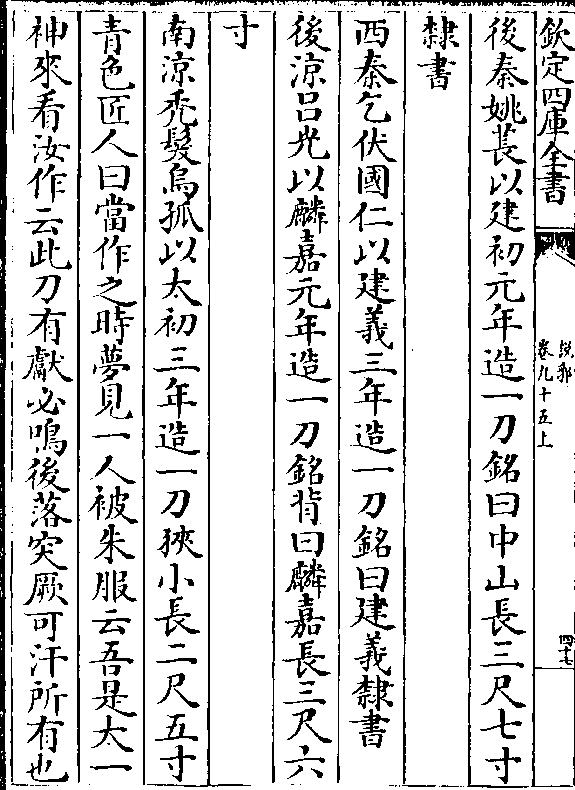 欽定四庫全書
說郛
卷九十五上
四十七
後秦姚萇以建初元年造一刀銘曰中山長三尺七寸
隸書
西秦乞伏國仁以建義三年造一刀銘曰建義隸書
後涼呂光以麟嘉元年造一刀銘背曰麟嘉長三尺六
寸
南涼禿髮烏孤以太初三年造一刀狹小長二尺五寸
青色匠人曰當作之時夢見一人被朱服云吾是太一
神來看汝作云此刀有獻必鳴後落突厥可汗所有也